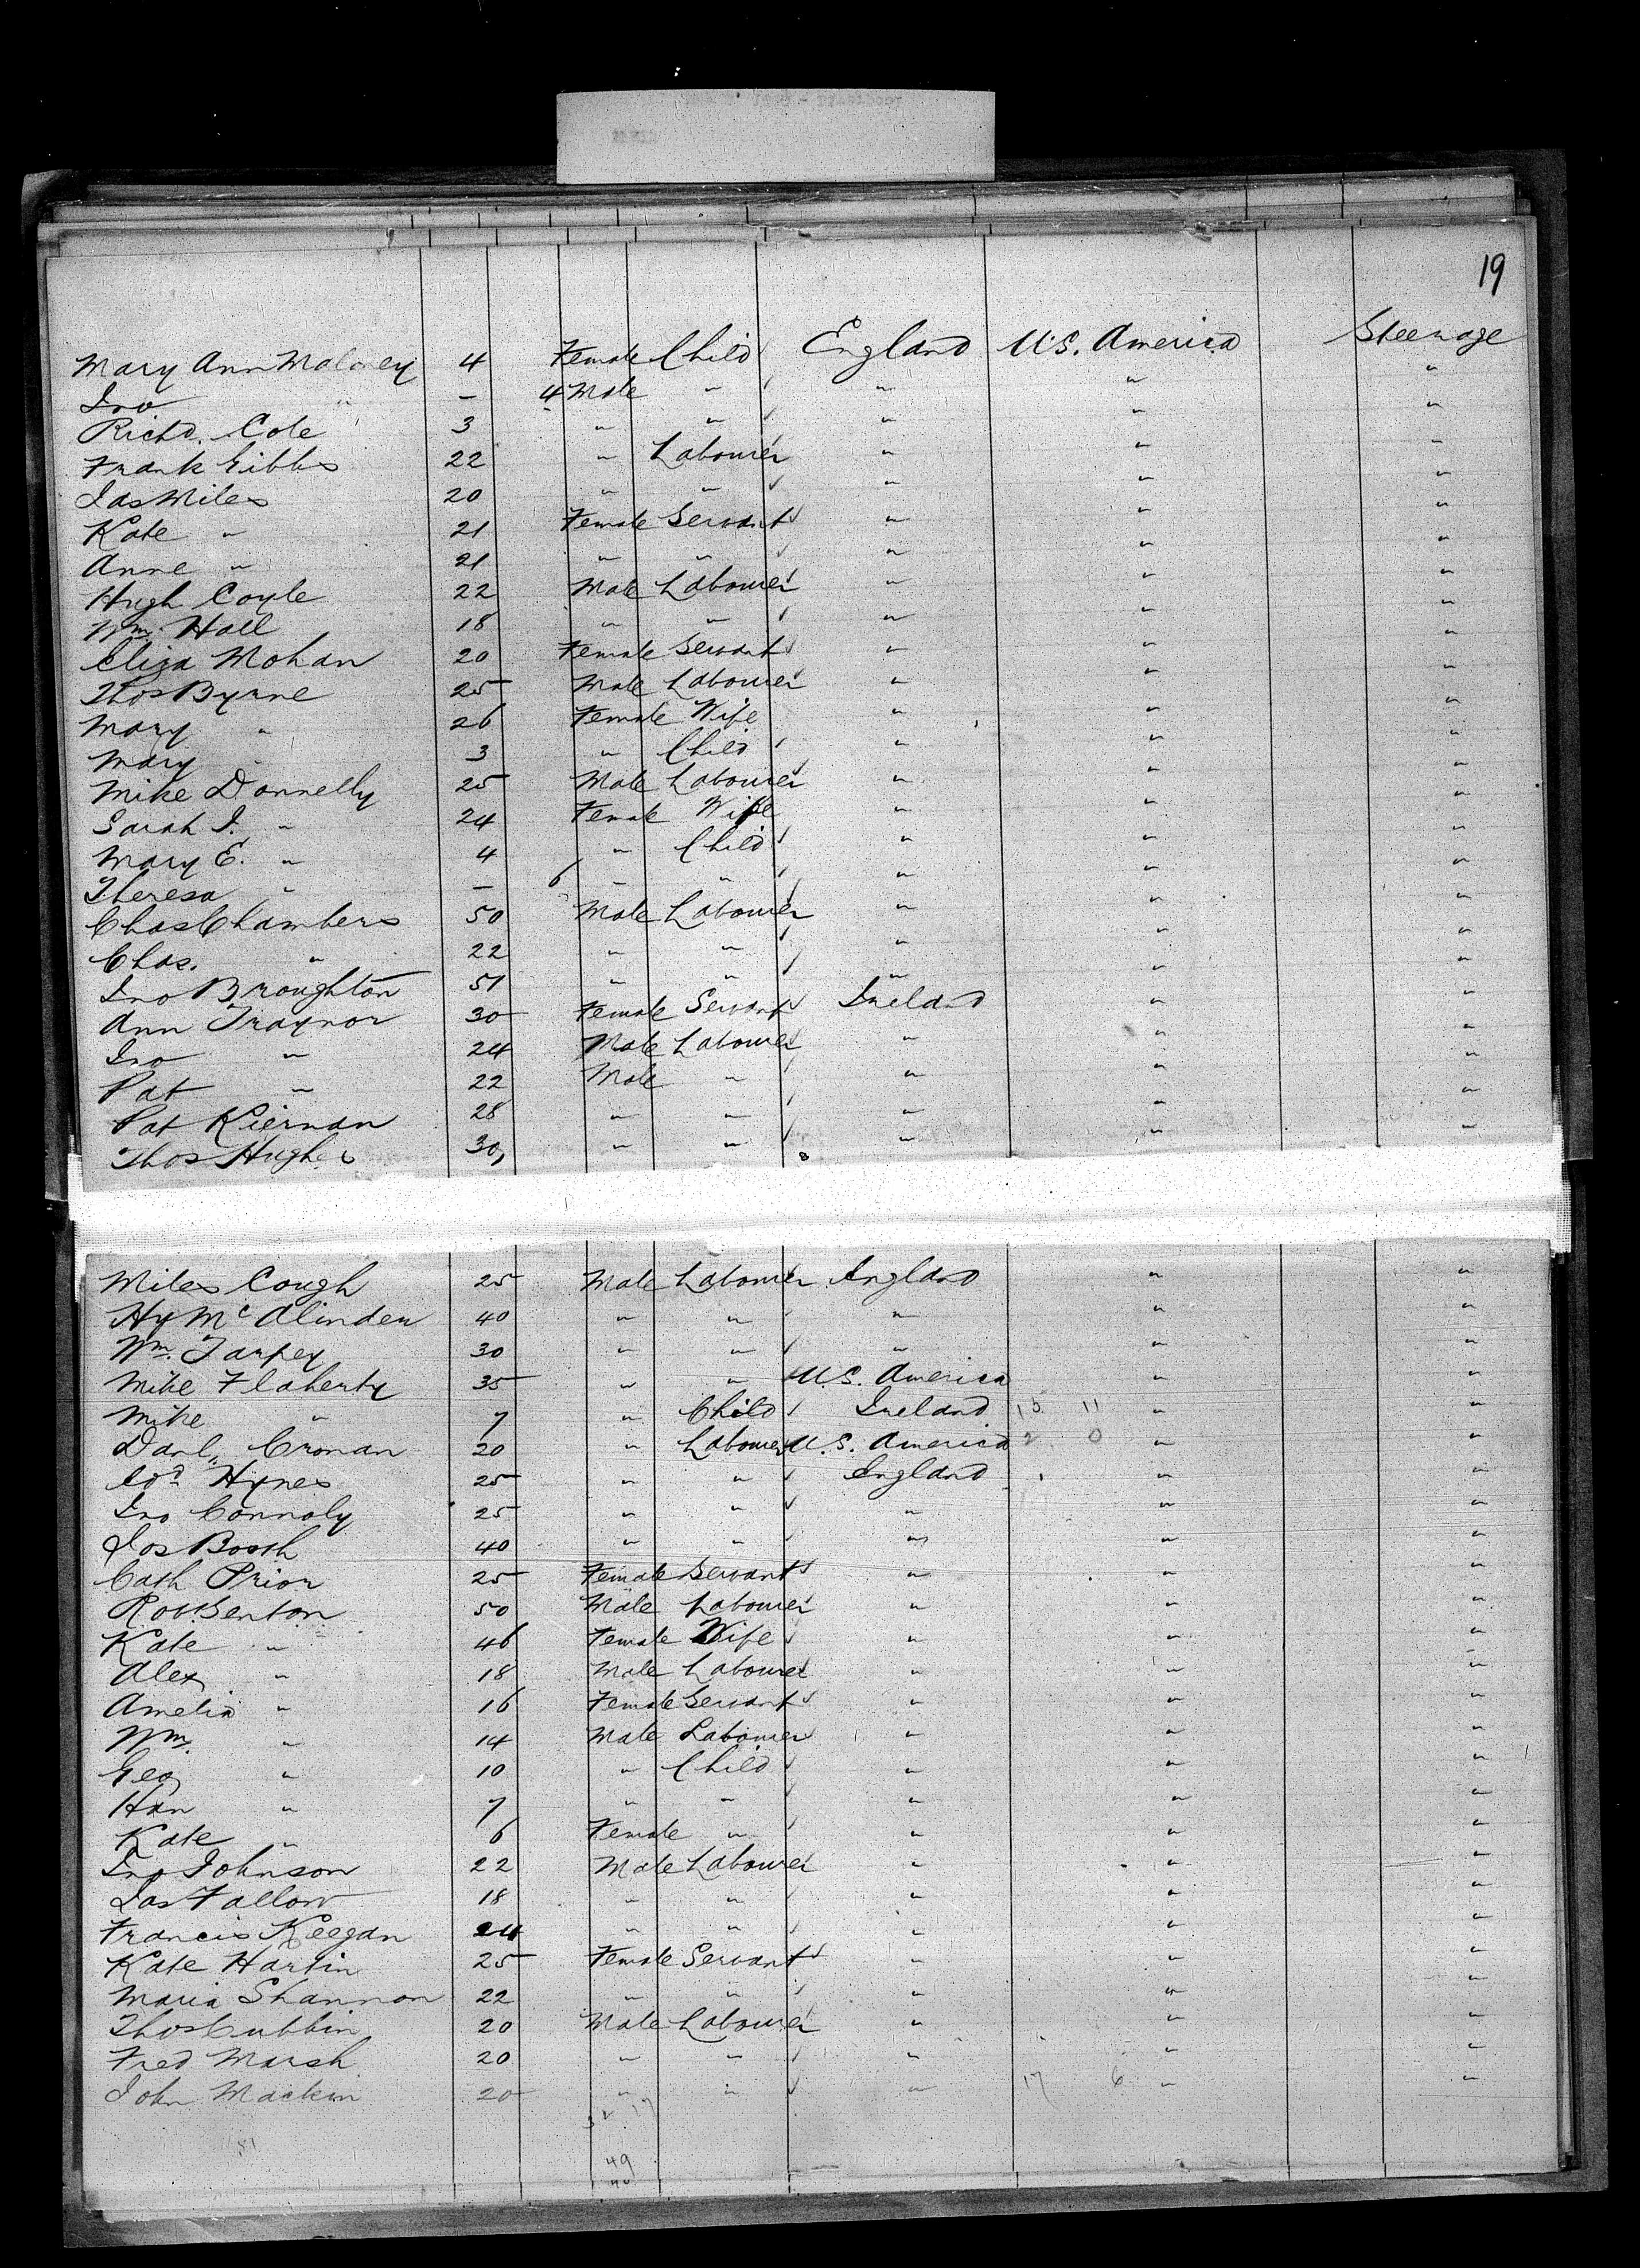 19
Mary Ann Maloney 4 Female Child England U.S. America Steerage
Jno " - 4 Male " " " "
Richd. Cole 3 " " " " "
Frank Gibbs 22 " Labourer " " "
Jas Miles 20 " " " " "
Kate " 21 Female Servant " " "
Anne " 21 " " " " "
Hugh Coyle 22 Male Labourer " " "
Wm. Hall 18 " " " " "
Eliza Mohan 20 Female Servant " " "
Thos Byrne 25 Male Labourer " " "
Mary " 26 Female Wife " " "
Mary " 3 " Child " " "
Mike Donnelly 25 Male Labourer " " "
Sarah J. " 24 Female Wife " " "
Mary E. " 4 " Child " " "
Theresa " - 6 " " " " "
Chas Chambers 50 Male Labourer " " "
Chas. " 22 " " " " "
Jno Broughton 51 " " " " "
Ann Traynor 30 Female Servant Ireland " "
Jno " 24 Male Labourer " " "
Pat " 22 Male " " " "
Pat Kiernan 28 " " " " "
Thos Hughes 30 " " " " "
Miles Cough 25 Male Labourer England " "
Hy McAlinden 40 " " " " "
Wm. Tarpey 30 " " " " "
Mike Flaherty 35 " " U.S. America " "
Mike " 7 " Child Ireland 11 " "
Danl. Cronan 20 " Labourer U.S. America 0 " "
Edd Hynes 25 " " England " "
Jno Connoly 25 " " " " "
Jos Booth 40 " " " " "
Cath Prior 25 Female Servant " " "
Robt Benton 50 Male Labourer " " "
Kate " 46 Female Wife " " "
Alex " 18 Male Labourer " " "
Amelia " 16 Female Servant " " "
Wm. " 14 Male Labourer " " "
Geo " 10 " Child " " "
Han " 7 " " " " "
Kate " 6 Female " " " "
Jno Johnson 22 Male Labourer " " "
Jas Fallow 18 " " " " "
Francis Keegan 24 " " " " "
Kate Hartin 25 Female Servant " " "
Maria Shannon 22 " " " " "
Thos Cubbin 20 Male Labourer " " "
Fred Marsh 20 " " " " "
John Mackin 20 " " " 17 6 " "
49